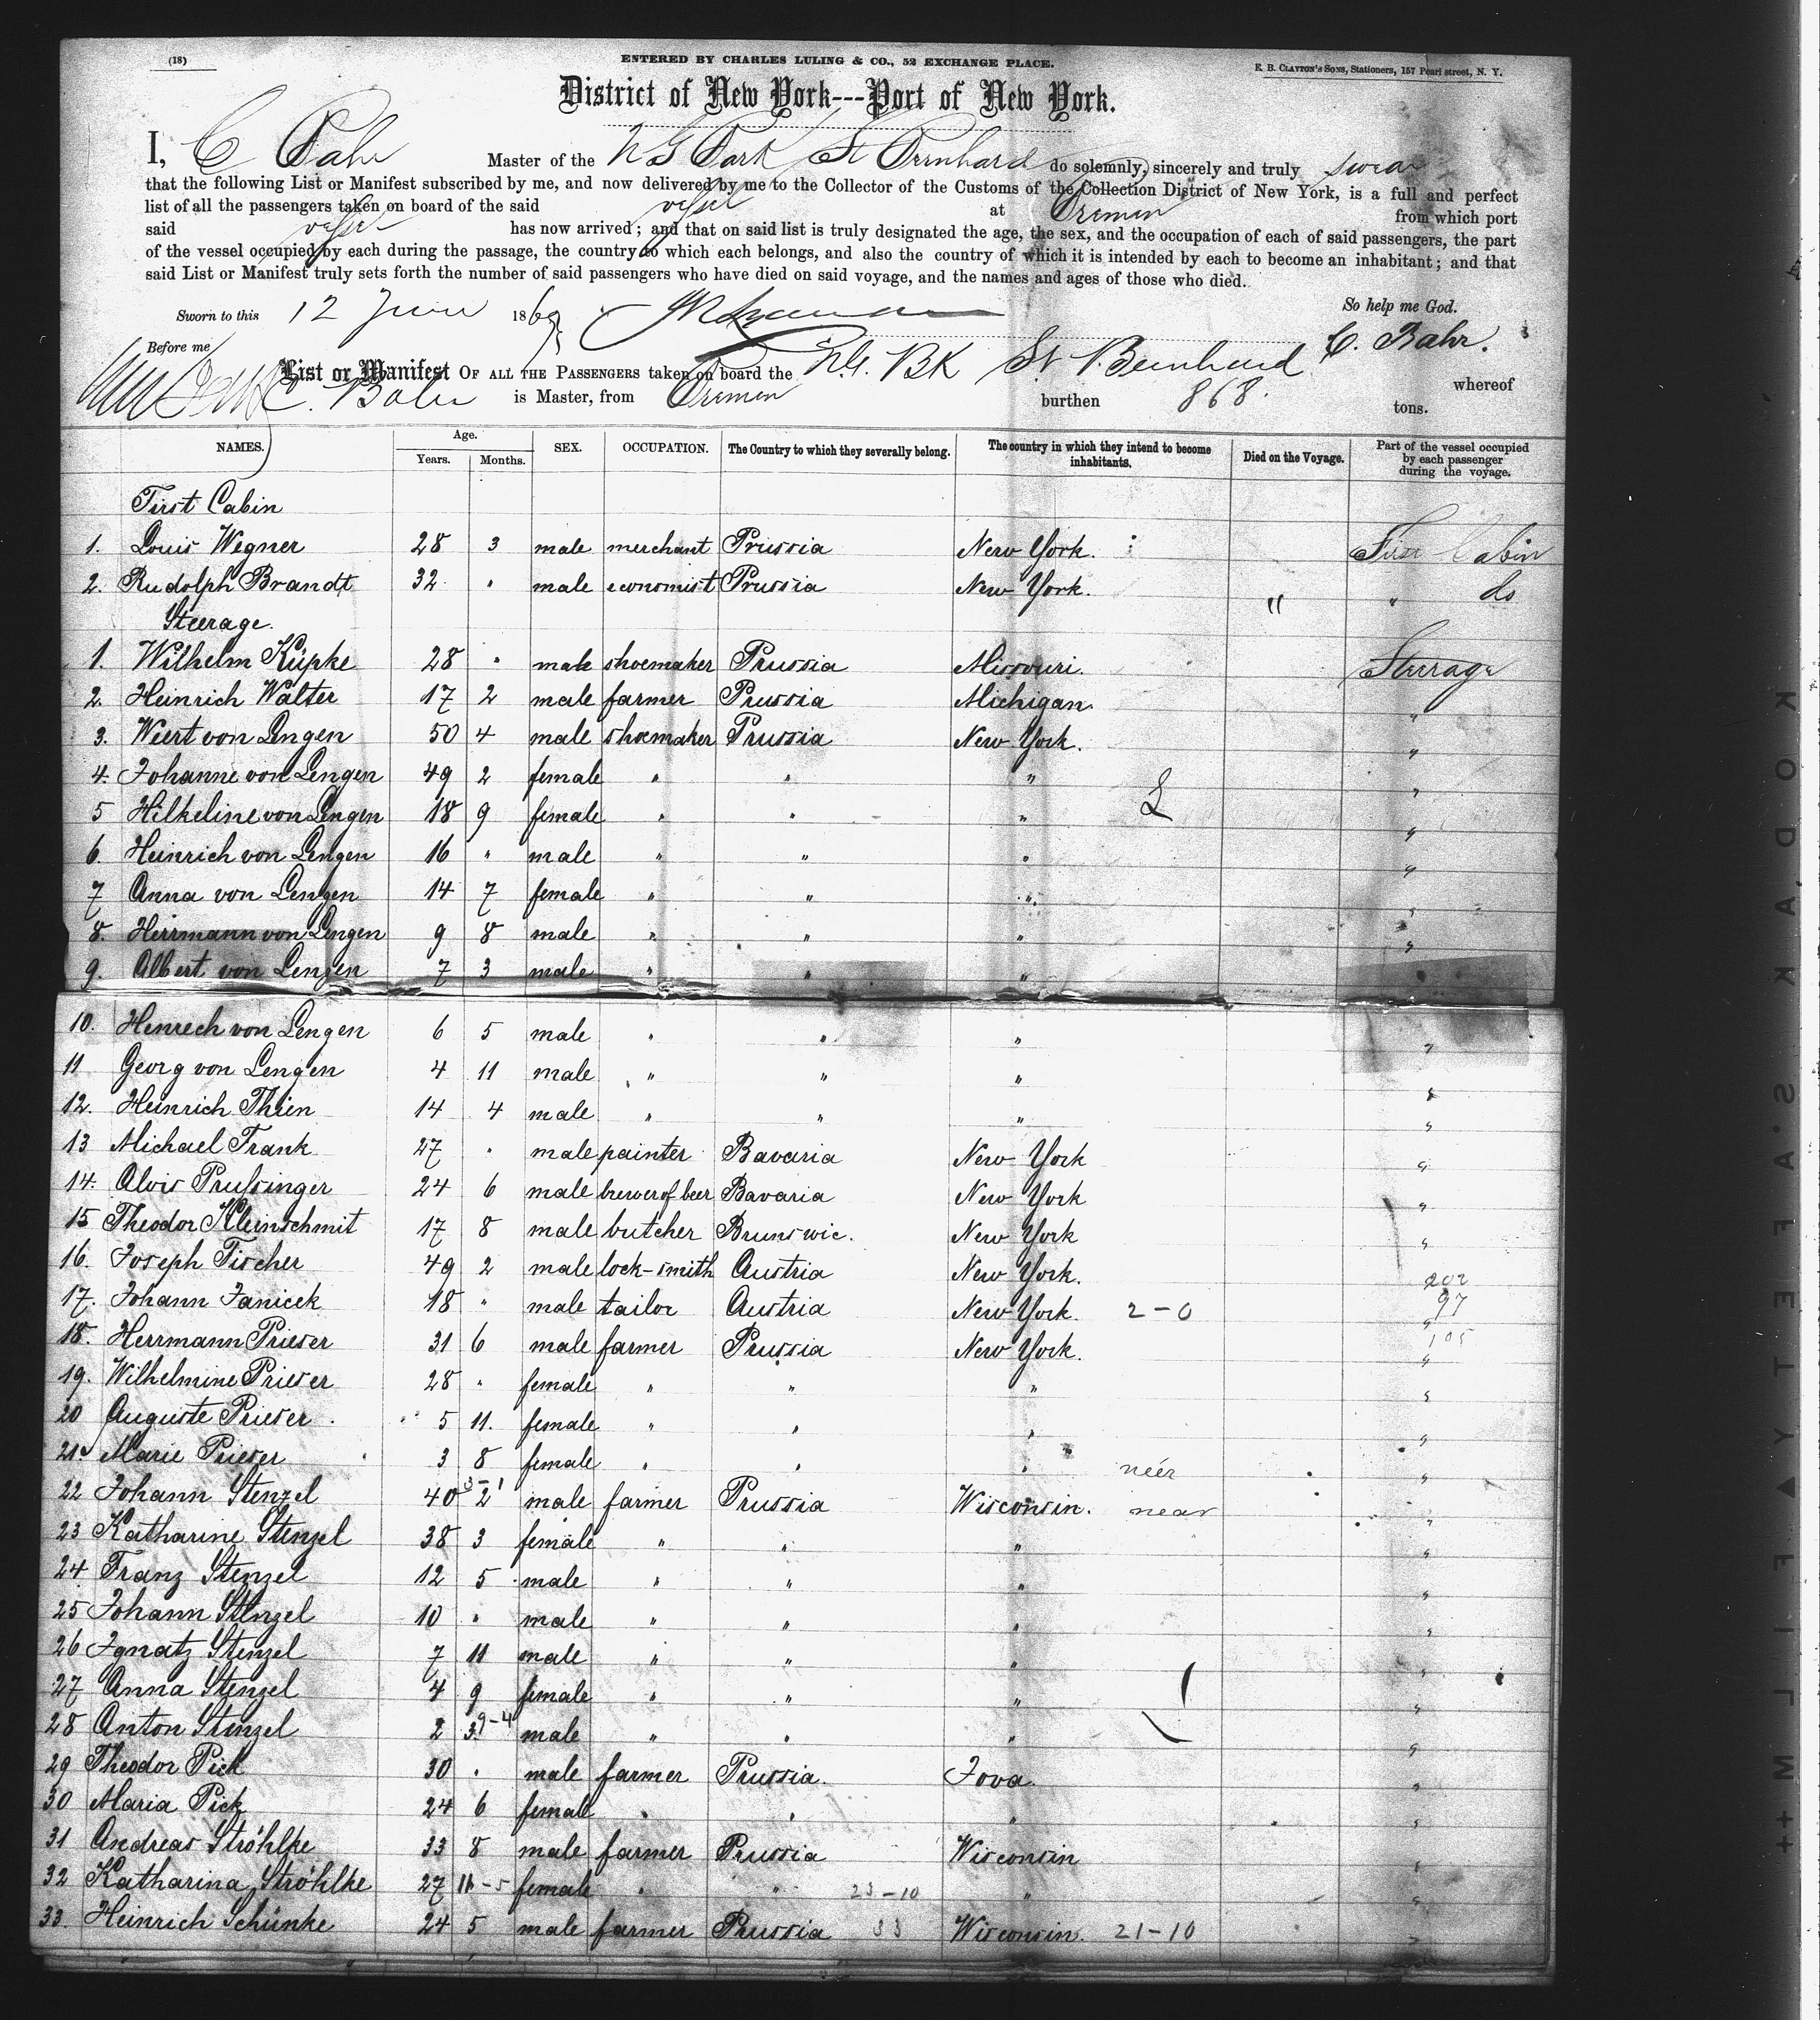 (18)
ENTERED BY CHARLES LULING & CO., 52 EXCHANGE PLACE.
E. B. CLAYTON'S SONS, Stationers, 157 Pearl street, N. Y.
District of New York---Port of New York.
I, C Bahr Master of the N G Bark St Bernhard do solemnly, sincerely and truly swear
that the following List or Manifest subscribed by me, and now delivered by me to the Collector of the Customs of the Collection District of New York, is a full and perfect
list of all the passengers taken on board of the said vessel at Bremen from which port
said vessel has now arrived; and that on said list is truly designated the age, the sex, and the occupation of each of said passengers, the part
of the vessel occupied by each during the passage, the country to which each belongs, and also the country of which it is intended by each to become an inhabitant; and that
said List or Manifest truly sets forth the number of said passengers who have died on said voyage, and the names and ages of those who died.
Sworn to this 12 June 1869 So help me God.
Before me C. Bahr.
List or Manifest OF ALL THE PASSENGERS taken on board the N.G. BK St Bernhard whereof
C. Bahr is Master, from Bremen burthen 868. tons.
NAMES. Age. Years. Months. SEX. OCCUPATION. The Country to which they severally belong. The country in which they intend to become inhabitants. Died on the Voyage. Part of the vessel occupied by each passenger during the voyage.
First Cabin
1. Louis Wegner 28 3 male merchant Prussia New York. First Cabin
2. Rudolph Brandt 32 " male economist Prussia New York. " " do
Steerage.
1. Wilhelm Küpke 28 " male shoemaker Prussia Missouri. Steerage
2. Heinrich Walter 17 2 male farmer Prussia Michigan. "
3. Wiert von Lengen 50 4 male shoemaker Prussia New York. "
4. Johanne von Lengen 49 2 female " " " "
5 Hilkeline von Lengen 18 9 female " " " "
6. Heinrich von Lengen 16 " male " " " "
7 Anna von Lengen 14 7 female " " " "
8. Herrmann von Lengen 9 8 male " " " "
9. Albert von Lengen 7 3 male " " "
10. Henrech von Lengen 6 5 male " " " "
11 Georg von Lengen 4 11 male " " " "
12. Heinrich Thien 14 4 male " " " "
13 Michael Frank 27 " male painter Bavaria New York "
14. Alois Prussinger 24 6 male brewer of beer Bavaria New York "
15 Theodor Kleinschmit 17 8 male butcher Brunswic. New York "
16. Joseph Fischer 49 2 male lock-smith Austria New York. 202
17. Johann Janicek 18 " male tailor Austria New York. 2-0 97 "
18. Herrmann Prieser 31 6 male farmer Prussia New York. 105 "
19. Wilhelmine Prieser 28 " female " " " "
20 Auguste Prieser 5 11. female " " " "
21. Marie Prieser 3 8 female " " " "
22 Johann Stenzel 40 2 3-1 male farmer Prussia Wisconsin. near "
23 Katharine Stenzel 38 3 female " " " "
24 Franz Stenzel 12 5 male " " " "
25 Johann Stenzel 10 " male " " " "
26 Ignatz Stenzel 7 11 male " " " "
27 Anna Stenzel 4 9 female " " " "
28 Anton Stenzel 2 3 9-4 male " " " "
29 Theodor Pick 30 " male farmer Prussia. Iova. "
30 Maria Pick 24 6 female " " " "
31 Andreas Ströhlke 33 8 male farmer Prussia Wisconsin "
32 Katharina Ströhlke 27 11 -5 female " " 23-10 " "
33. Heinrich Schünke 24 5 male farmer Prussia 33 Wisconsin. 21-10 "
KODAK SAFETY FILM